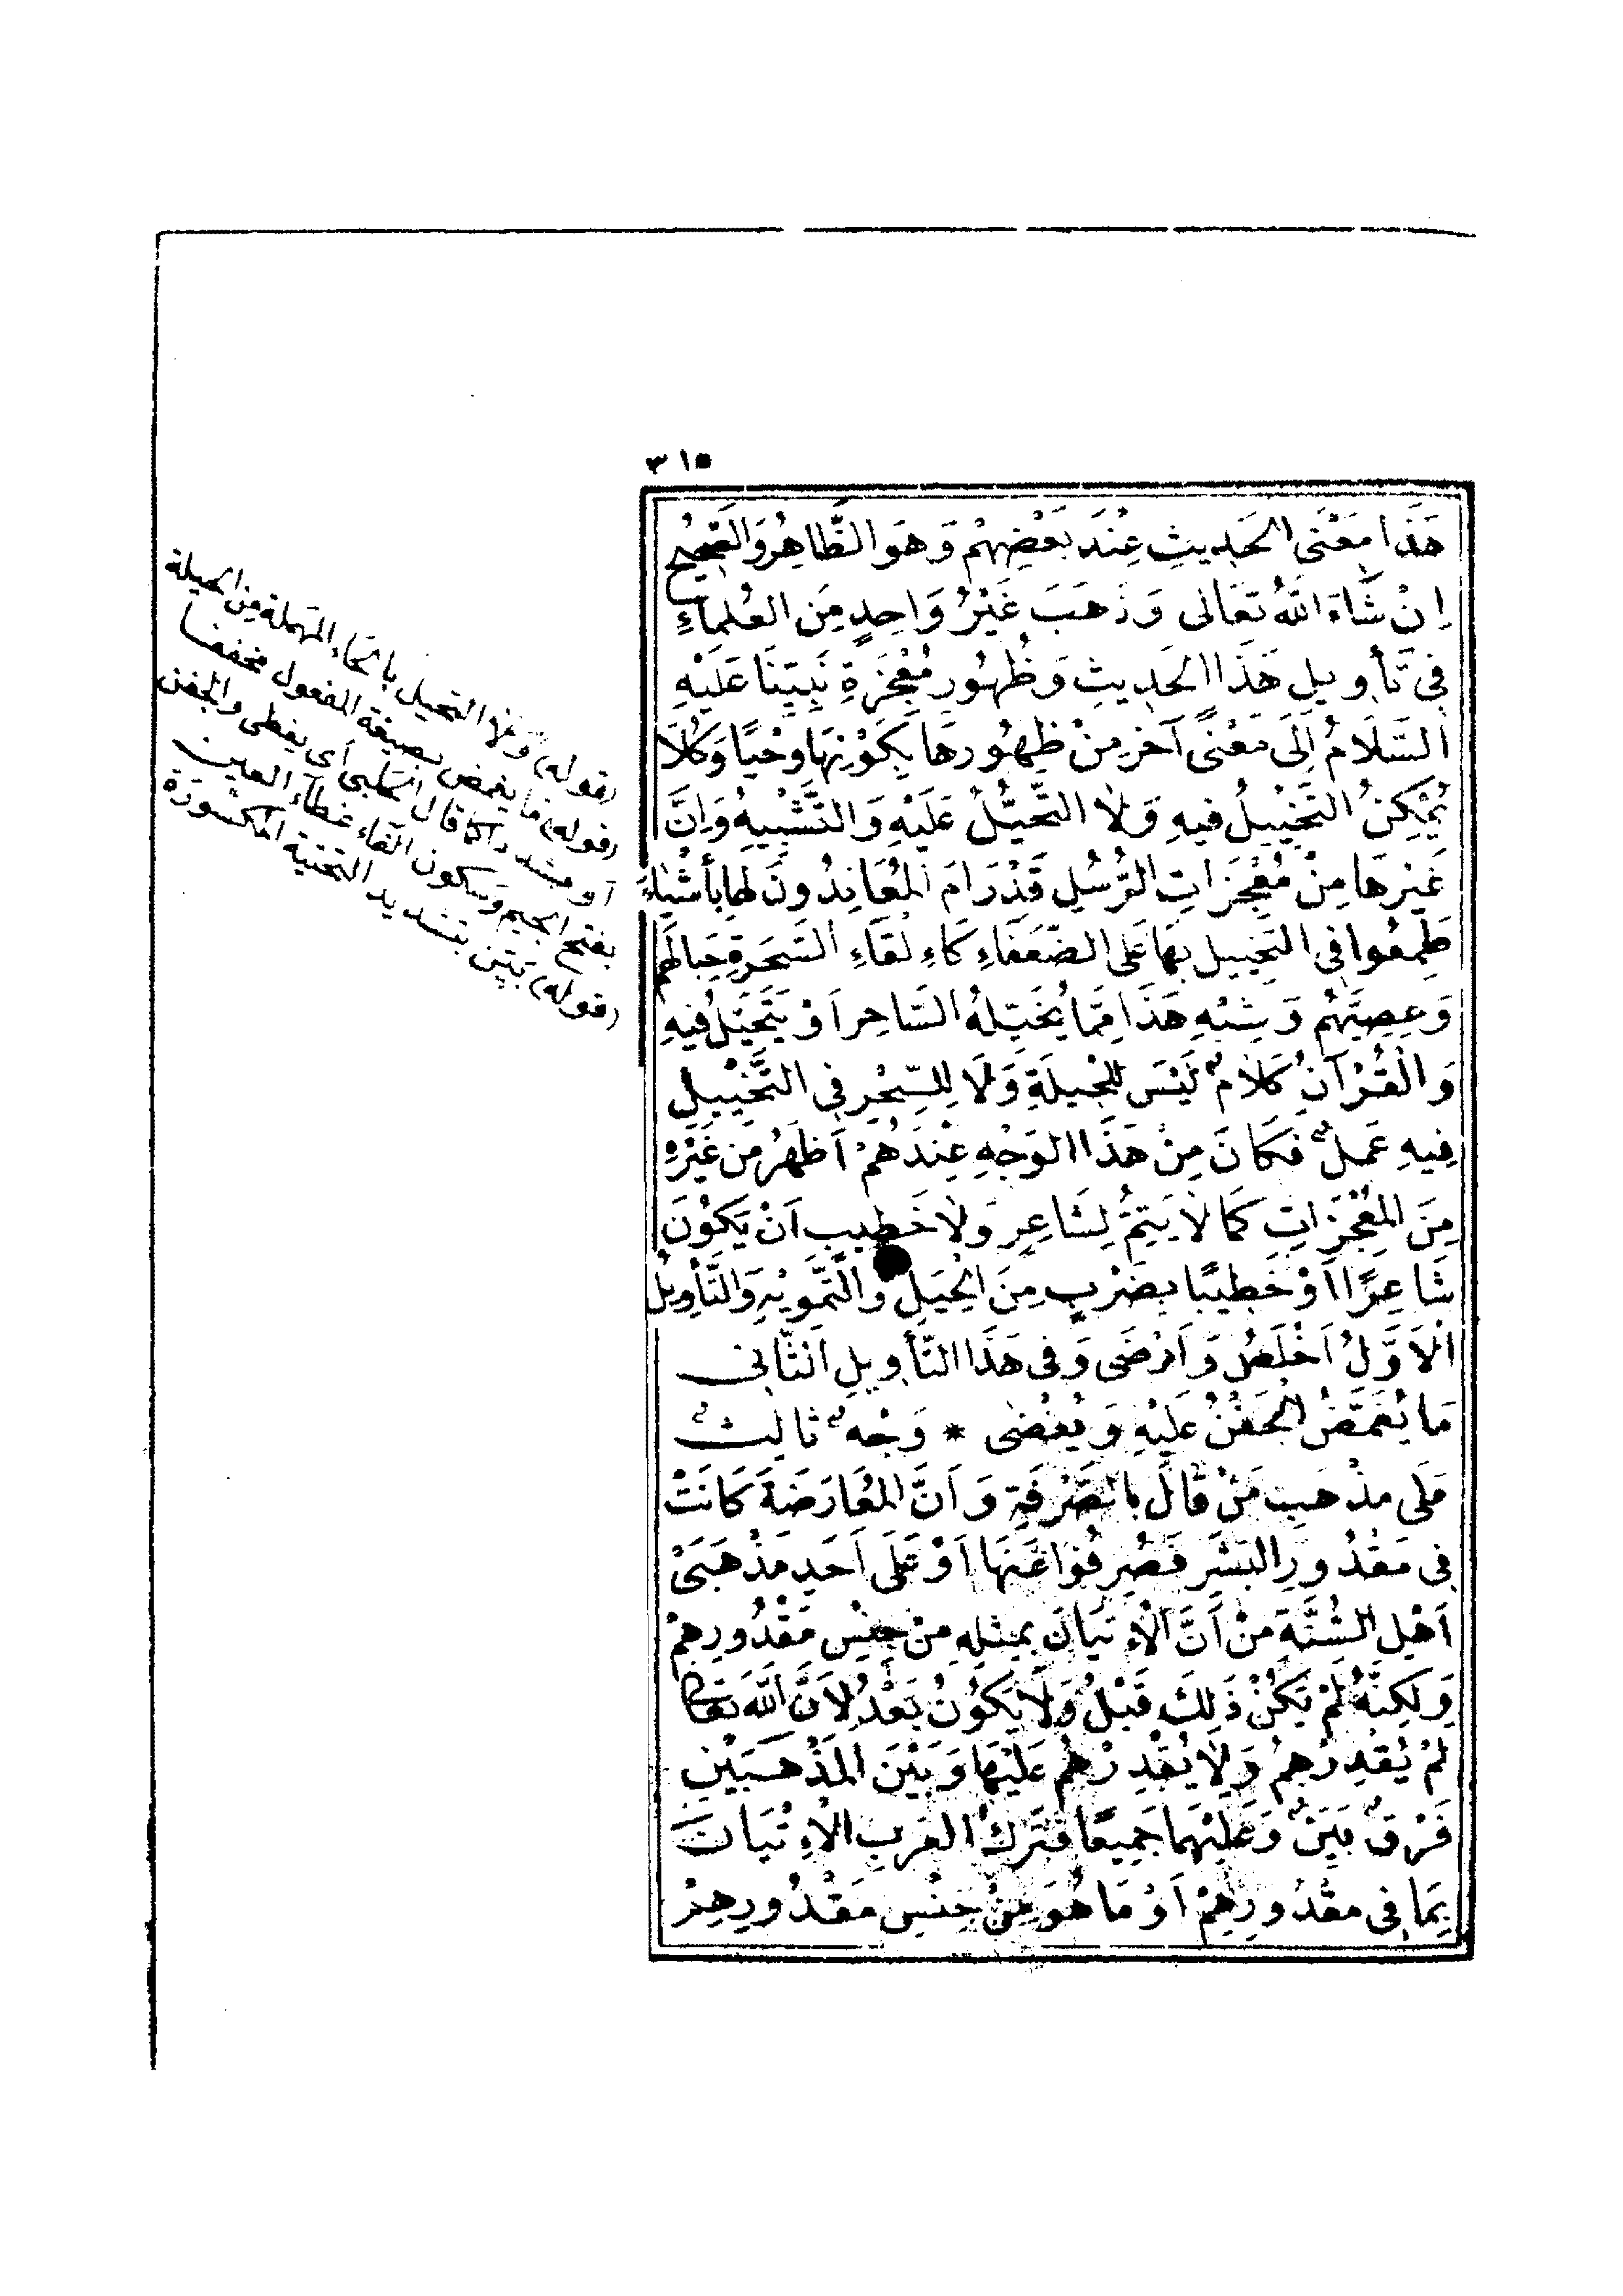 ٣١٥
هَذَا مَعْنَى الحَدِيثِ عِنْدَ بَعْضِهِمْ وَهُوَ الظَّاهِرُ وَالصَّحِيحُ
اِنْ شَاءَ اللهُ تَعَالَى وَذَهَبَ غَيْرُ وَاحِدٍ مِنَ العُلَمَاءِ
فِي تَأْوِيلِ هَذَا الحَدِيثِ وَظُهُورِ مُعْجِزَةِ نَبِيِّنَا عَلَيْهِ
السَّلَامُ اِلَى مَعْنًى آخَرَ مِنْ ظُهُورِهَا بِكَوْنِهَا وَحْيًا وَكَلَامًا
يُمْكِنُ التَّخْيِيلُ فِيهِ وَلَا التَّحَيُّلُ عَلَيْهِ وَالتَّشْبِيهُ وَاِنَّ
غَيْرَهَا مِنْ مُعْجِزَاتِ الرُّسُلِ قَدْ رَامَ المُعَانِدُونَ لَهَا بِأَشْيَاءَ
طَمِعُوا فِي التَّخْيِيلِ بِهَا عَلَى الضُّعَفَاءِ كَاِلْقَاءِ السَّحَرَةِ حِبَالَهُمْ
وَعِصِيَّهُمْ وَشِبْهِ هَذَا مِمَّا يُخَيِّلُهُ السَّاحِرُ اَوْ يَتَحَيَّلُ فِيهِ
وَالْقُرْآنُ كَلَامٌ لَيْسَ لِلْحِيلَةِ وَلَا لِلسِّحْرِ فِي التَّخْيِيلِ
فِيهِ عَمَلٌ فَكَانَ مِنْ هَذَا الوَجْهِ عِنْدَهُمْ اَظْهَرُ مِنْ غَيْرِهِ
مِنَ المُعْجِزَاتِ كَمَا لَا يَتِمُّ لِشَاعِرٍ وَلَا خَطِيبٍ اَنْ يَكُونَ
شَاعِرًا اَوْ خَطِيبًا بِضَرْبٍ مِنَ الحِيَلِ وَالتَّمْوِيهِ وَالتَّأْوِيلُ
الْاَوَّلُ اَخْلَصُ وَاَرْضَى وَفِي هَذَا التَّأْوِيلِ الثَّانِي
مَا يُغَمَّضُ الجَفْنُ عَلَيْهِ وَيُغْضَى * وَجْهٌ ثَالِثٌ
عَلَى مَذْهَبِ مَنْ قَالَ بِالصَّرْفَةِ وَاَنَّ المُعَارَضَةَ كَانَتْ
فِي مَقْدُورِ البَشَرِ فَصُرِفُوا عَنْهَا اَوْ عَلَى اَحَدِ مَذْهَبَيْ
اَهْلِ السُّنَّةِ مِنْ اَنَّ الْاِتْيَانَ بِمِثْلِهِ مِنْ جِنْسِ مَقْدُورِهِمْ
وَلَكِنَّهُ لَمْ يَكُنْ ذَلِكَ قَبْلُ وَلَا يَكُونُ بَعْدُ لِاَنَّ اللهَ تَعَالَى
لَمْ يُقْدِرْهُمْ وَلَا يُقْدِرُهُمْ عَلَيْهَا وَبَيْنَ المَذْهَبَيْنِ
فَرْقٌ بَيِّنٌ وَعَلَيْهِمَا جَمِيعًا فَتَرْكُ العَرَبِ الْاِتْيَانَ
بِمَا فِي مَقْدُورِهِمْ اَوْ مَا هُوَ مِنْ جِنْسِ مَقْدُورِهِمْ
(قوله) وَلَا التحيل بالحاء المهملة من الحيلة
(قوله) ما يغمض بصيغة المفعول مخففا
أو مشددا كما قال الحلبى أى يغطى والجفن
بفتح الجيم وسكون الفاء غطاء العين
(قوله) بَيِّن بتشديد التحتية المكسورة